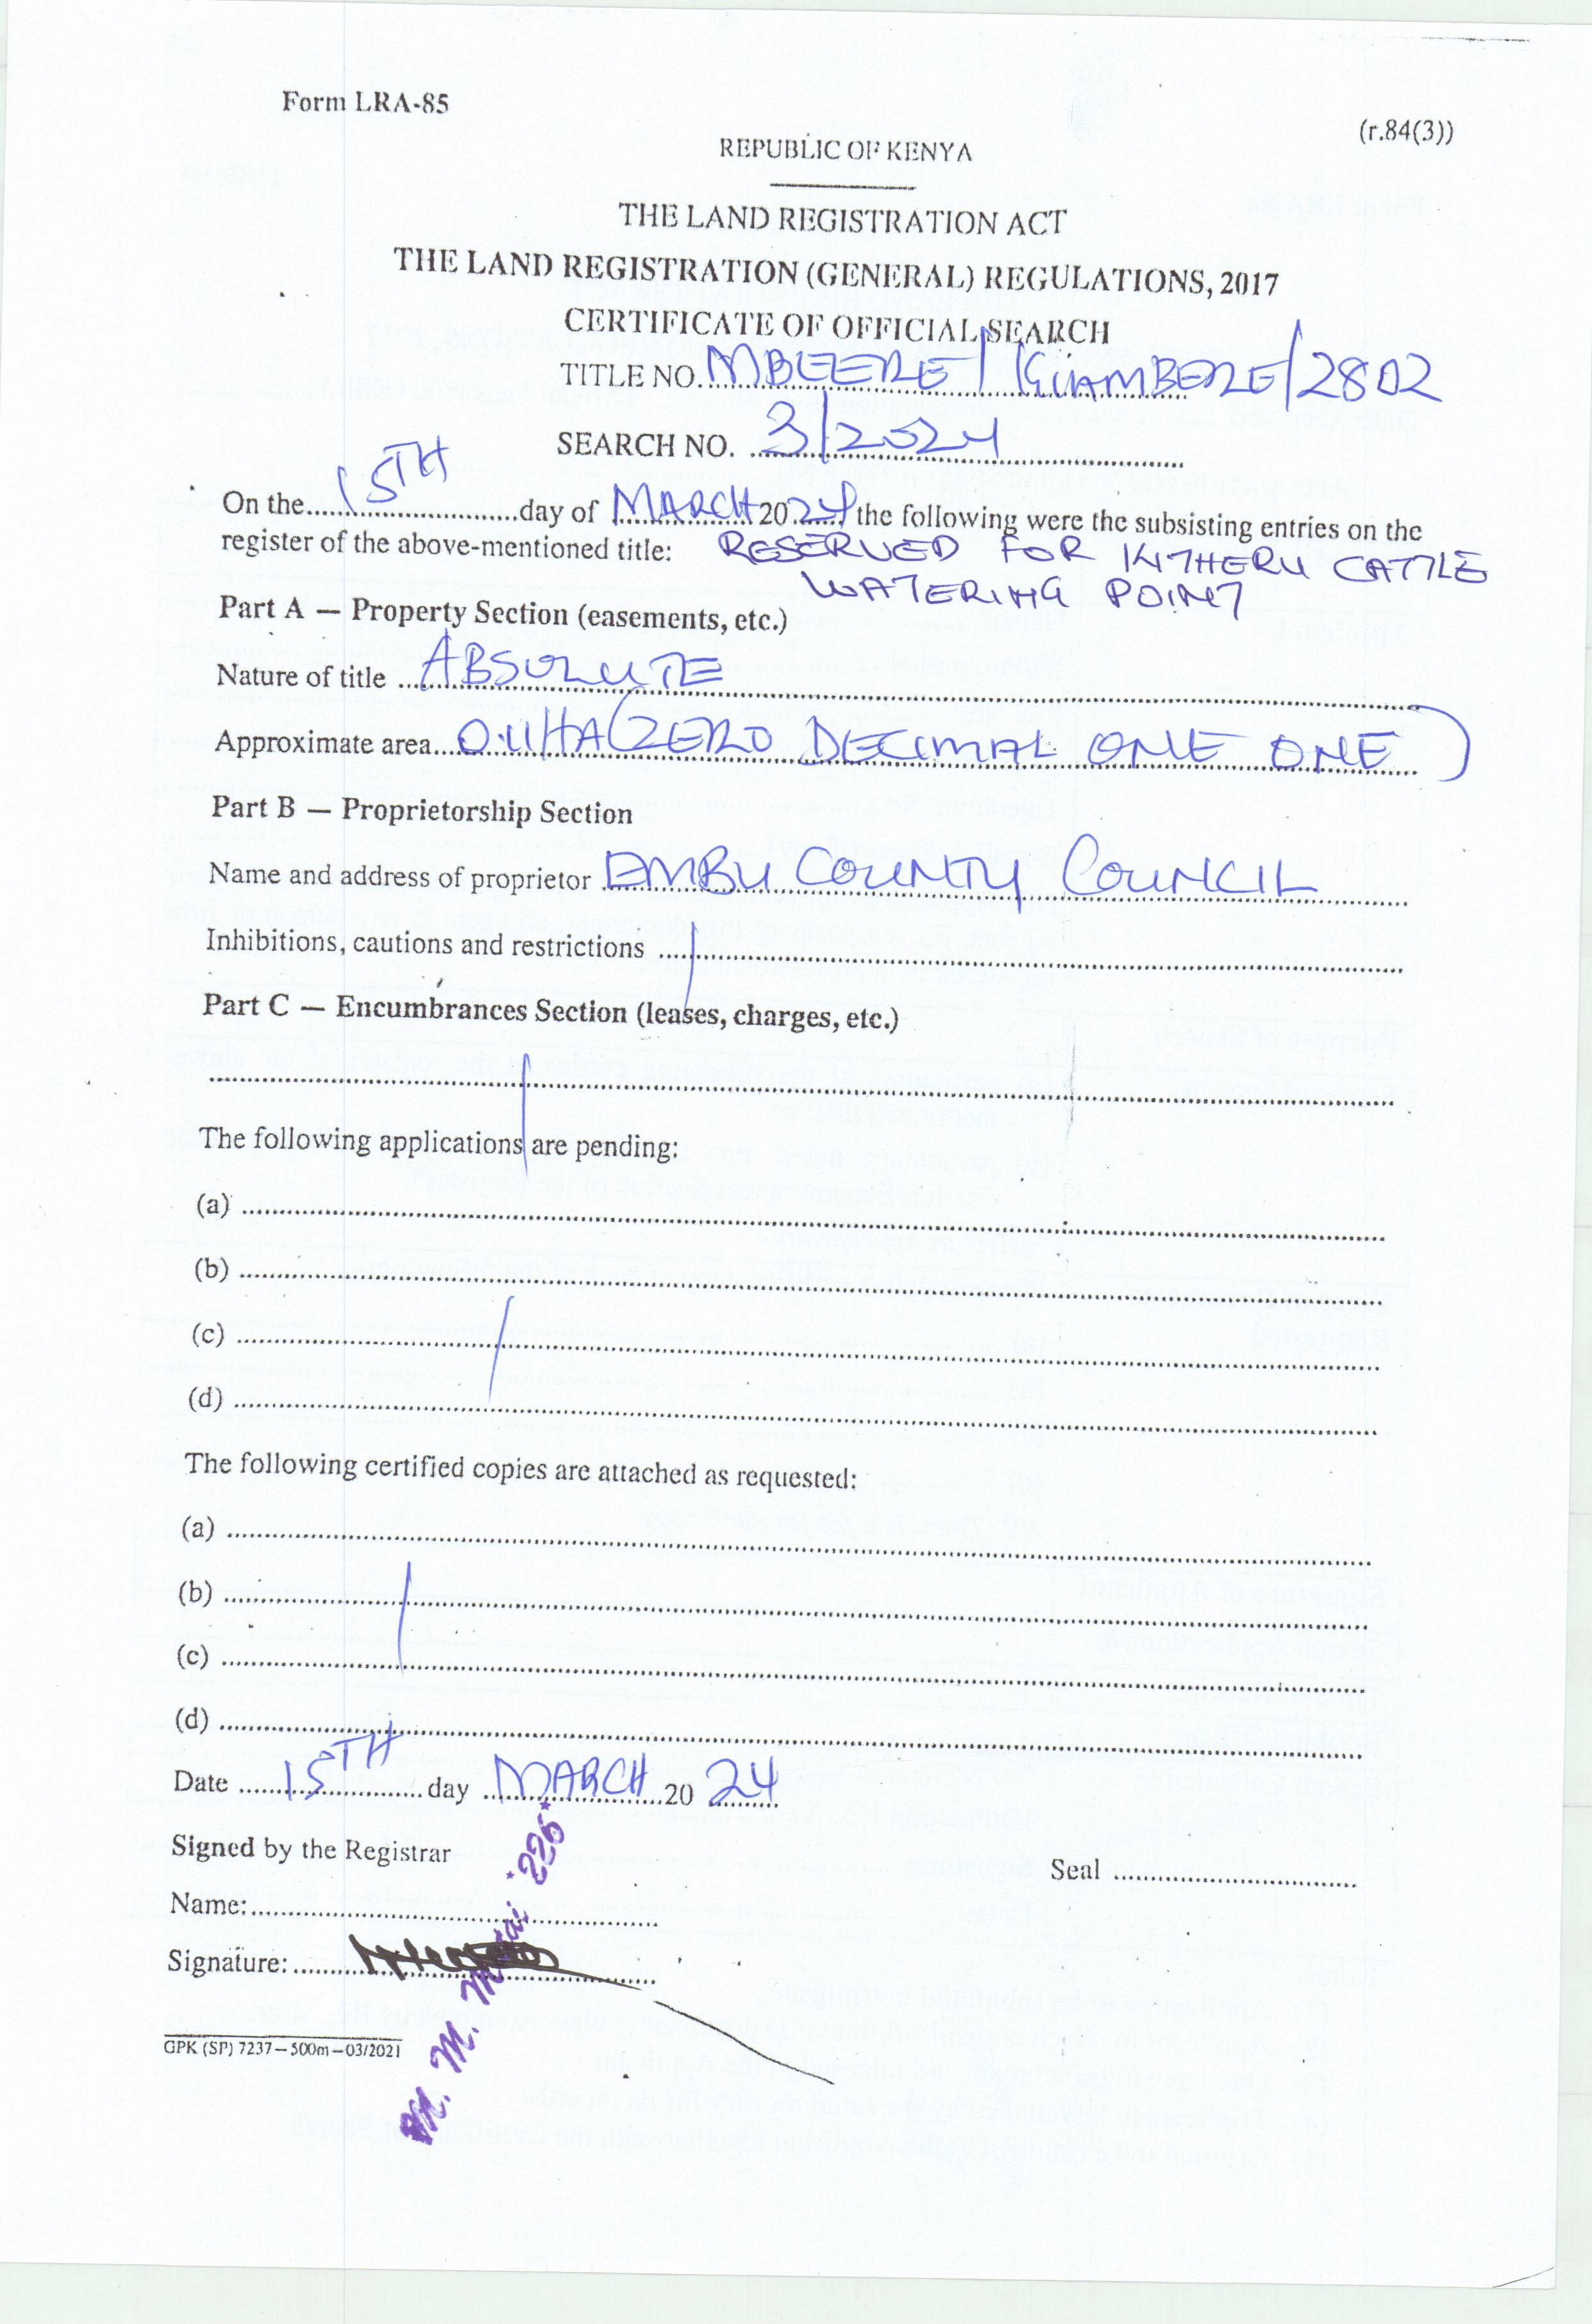 Form LRA-85
(r.84(3))
REPUBLIC OF KENYA
THE LAND REGISTRATION ACT
THE LAND REGISTRATION (GENERAL) REGULATIONS, 2017
CERTIFICATE OF OFFICIAL SEARCH
TITLE NO. MBEERE/KIAMBERE/2802
SEARCH NO. 3/2024
On the 15TH day of MARCH 2024 the following were the subsisting entries on the
register of the above-mentioned title: RESERVED FOR KITHERU CATTLE
WATERING POINT
Part A — Property Section (easements, etc.)
Nature of title ABSOLUTE
Approximate area 0.11HA (ZERO DECIMAL ONE ONE)
Part B — Proprietorship Section
Name and address of proprietor EMBU COUNTY COUNCIL
Inhibitions, cautions and restrictions
Part C — Encumbrances Section (leases, charges, etc.)
The following applications are pending:
(a)
(b)
(c)
(d)
The following certified copies are attached as requested:
(a)
(b)
(c)
(d)
Date 15TH day MARCH 2024
Signed by the Registrar
Seal
Name:
Signature:
M. M. *226*
GPK (SP) 7237—500m—03/2021